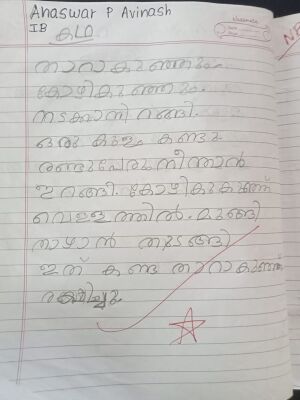 Anaswar P Avinash
IB
കഥ
താറാകുഞ്ഞും
കോഴികുഞ്ഞും
നടക്കാനിറങ്ങി.
ഒരു കുളം കണ്ടു
രണ്ടുപേരും നീന്താൻ
ഇറങ്ങി. കോഴികുഞ്ഞ്
വെള്ളത്തിൽ മുങ്ങി
താഴാൻ തുടങ്ങി
ഇത് കണ്ട താറാകുഞ്ഞ്
രക്ഷിച്ചു.